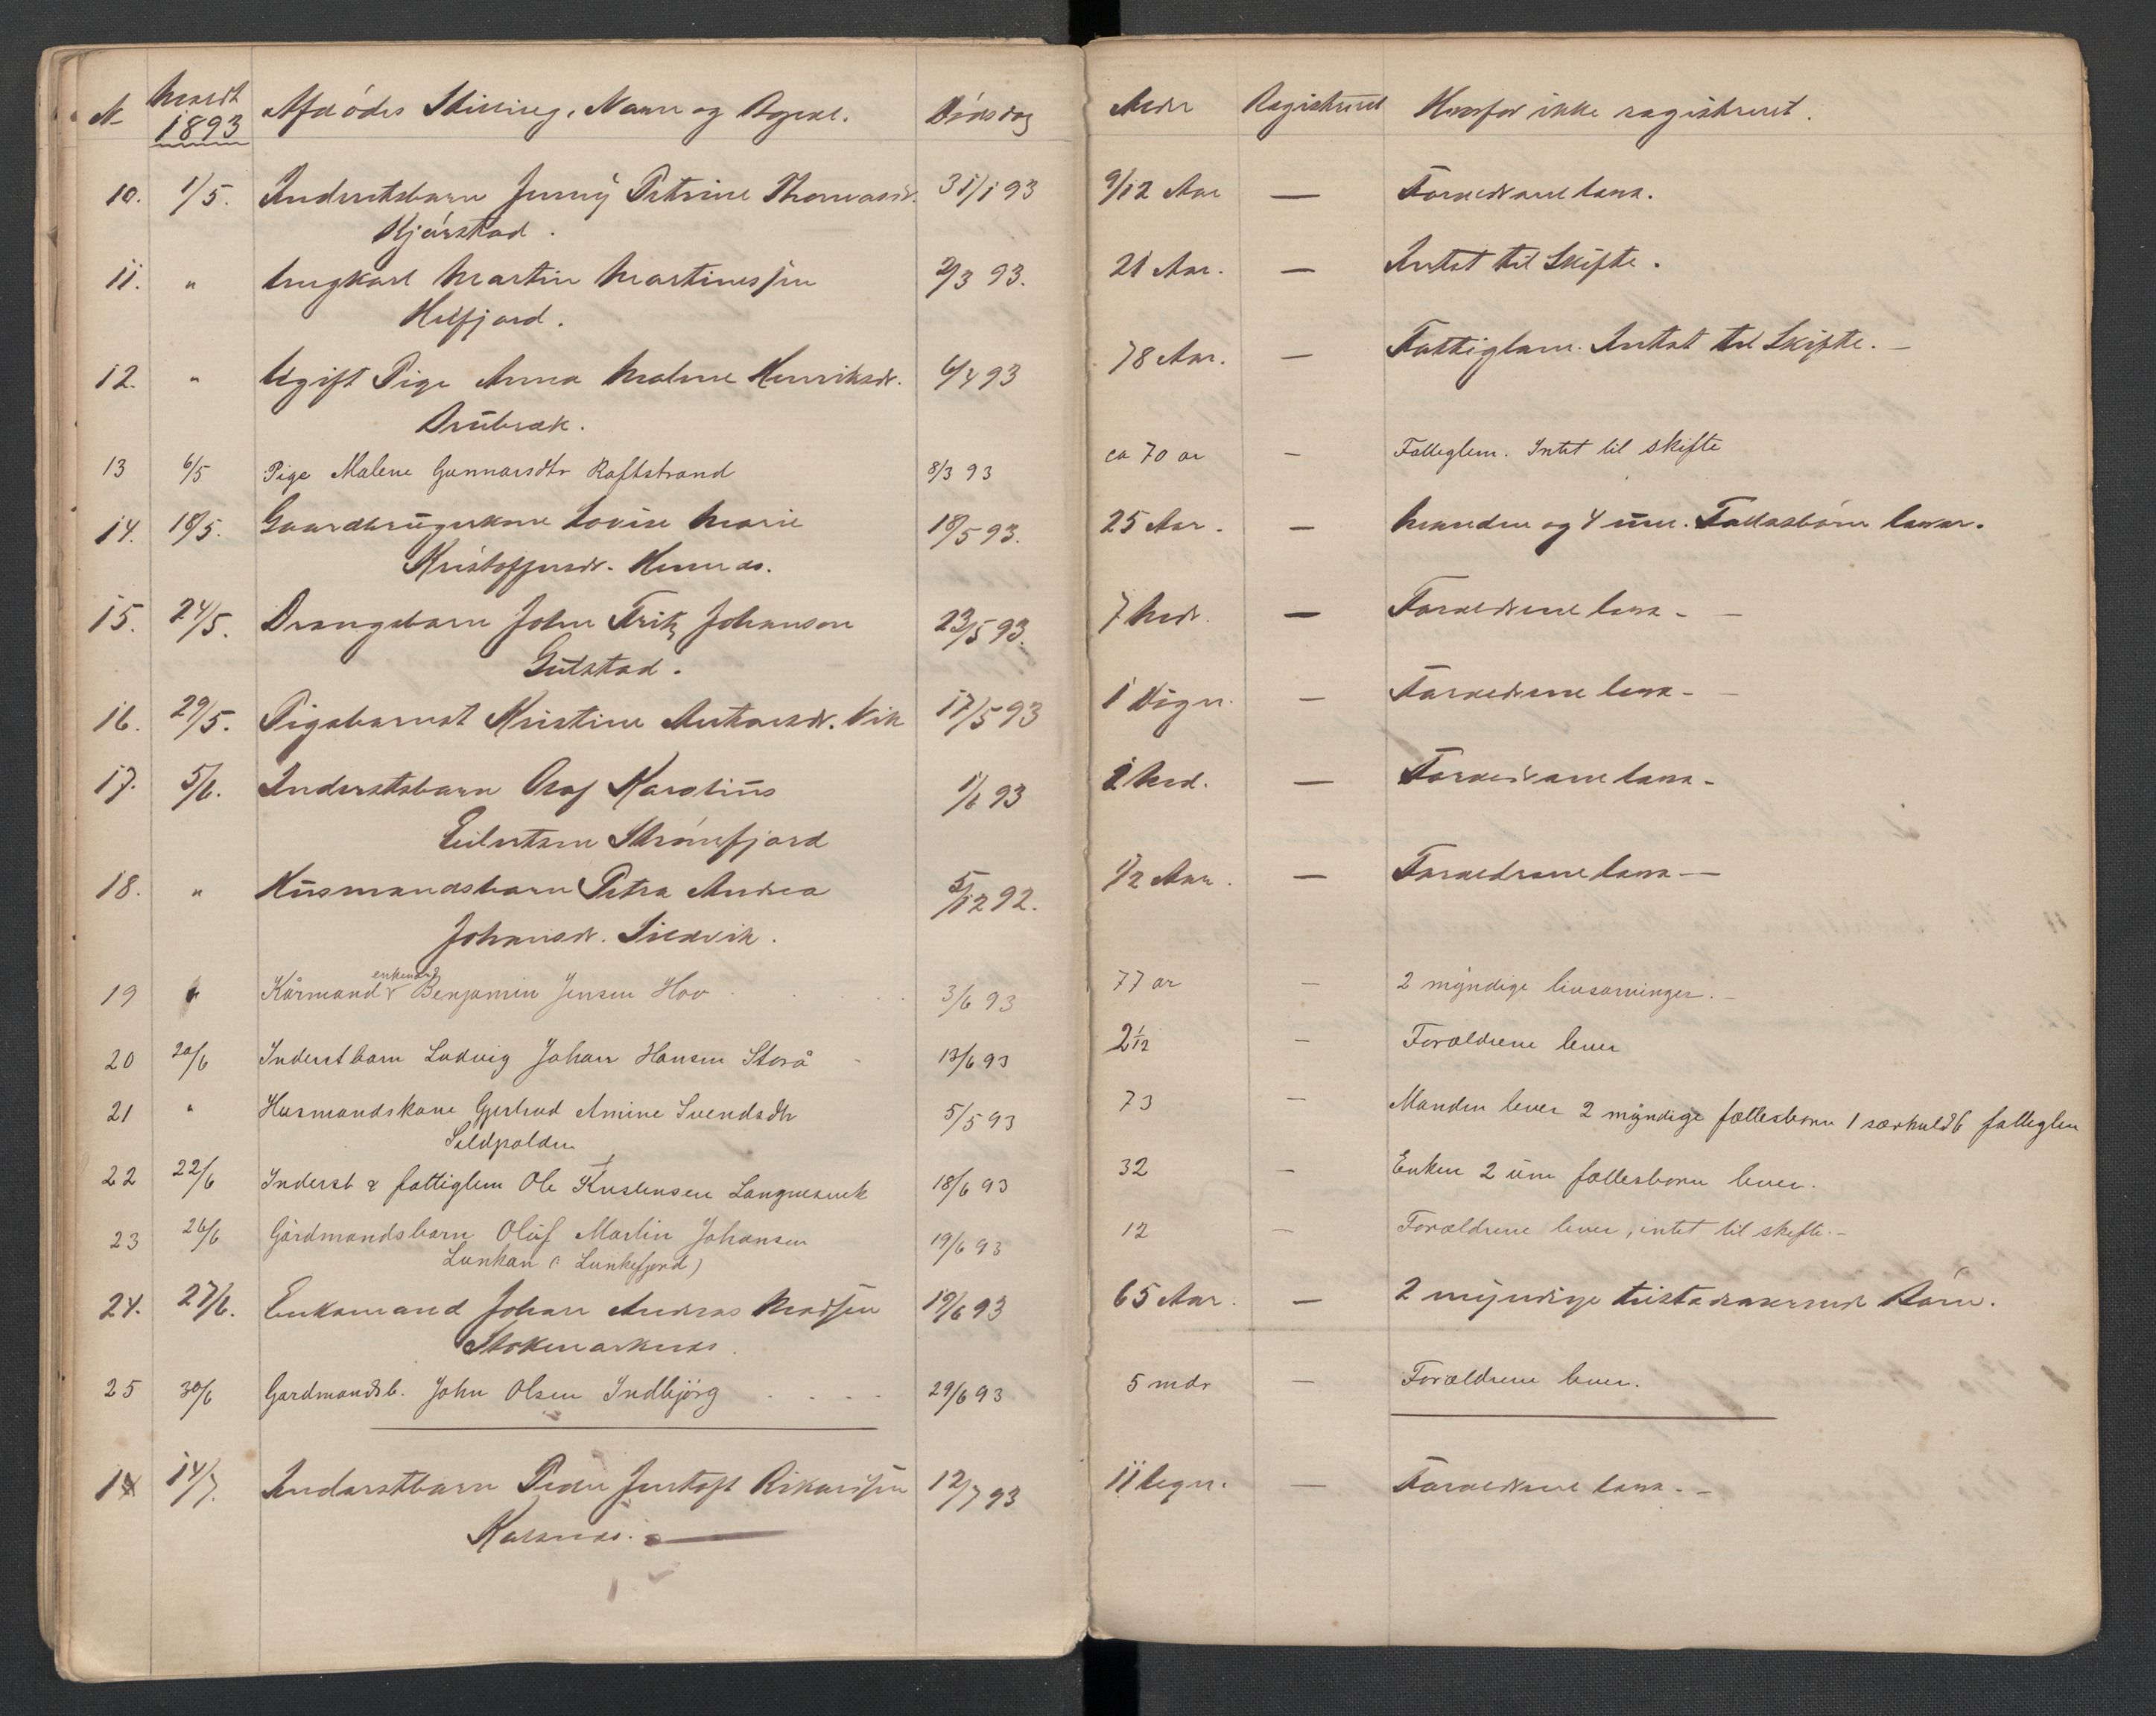 N Meldt 1893 Afdødes Stilling, Navn og Bopæl. Dödsdag Alder Registreret Hvorfor ikke registreret.
10. 1/5. Inderstsbarn Jenny Petrine Thomasdr. 31/1 93 9/12 Aar — Forældrene leve.
Kjørstad.
11. " Ungkarl Martin Martinessen 2/3 93. 21 Aar. — Intet til Skifte.
Helfjord.
12. " Ugift Pige Anna Malene Henriksdr. 6/4 93 78 Aar. — Fattiglem. Intet til Skifte. —
13 6/5 Pige Malene Gunnarsdtr Raftstrand 8/3 93 ca 70 ar — Fatteglem. Intet til skifte
14. 18/5. Gaardbrugerkone Lovise Marie 18/5 93. 25 Aar. — Manden og 4 um. Fællesbörn lever.
Kristoffersdr. Hennes.
15. 24/5. Drengebarn John Fritz Johanson 23/5 93. 7 Mdr. — Forældrene leve —
Gulstad.
16. 29/5. Pigebarnet Kristine Antonsdr. Vik 17/5 93 1 Dögn. — Forældrene leve —
17. 5/6. Inderstsbarn Olaf Karolius 1/6 93 2 Md. — Forældrene leve —
Eilertsen Strömfjord
18. " Husmandsbarn Petra Andrea 5/12 92. 1/2 Aar. — Forældrene leve —
Johansdr. Sildvik.
19 " Kårmand & enkemand Benjamin Jensen Hov 3/6 93 77 ar — 2 myndige livsarvinger. —
20 20/6 Inderstbarn Ludvig Johan Hansen Storå 13/6 93 2 1/12 — Forældrene lever
21 " Husmandskone Gjertrud Amine Svendsdtr 5/5 93 73 — Manden lever 2 myndige fællesbörn 1 særkuldb fatteglem
Sildpolden
22 22/6 Inderst & fattiglem Ole Kristensen 18/6 93 32 — Enken 2 um fællesbörn lever.
23 26/6 Gårdmandsbarn Oluf Martin Johansen 19/6 93 12 — Forældrene lever, intet til skifte. —
Lunkan (: Lunkefjord)
24. 27/6. Enkemand Johan Andreas Madsen 19/6 93 65 Aar. — 2 myndige tilstedeværende Börn.
Stokmarknes.
25 30/6 Gardmandsb. John Olsen Indbjörg 29/6 93 5 mdr — Forældrene lever.
1 14/7. Inderstbarn Peder Jentoft Rikardsen 12/7 93 11 Uger. — Forældrene leve. —
Kaknes.